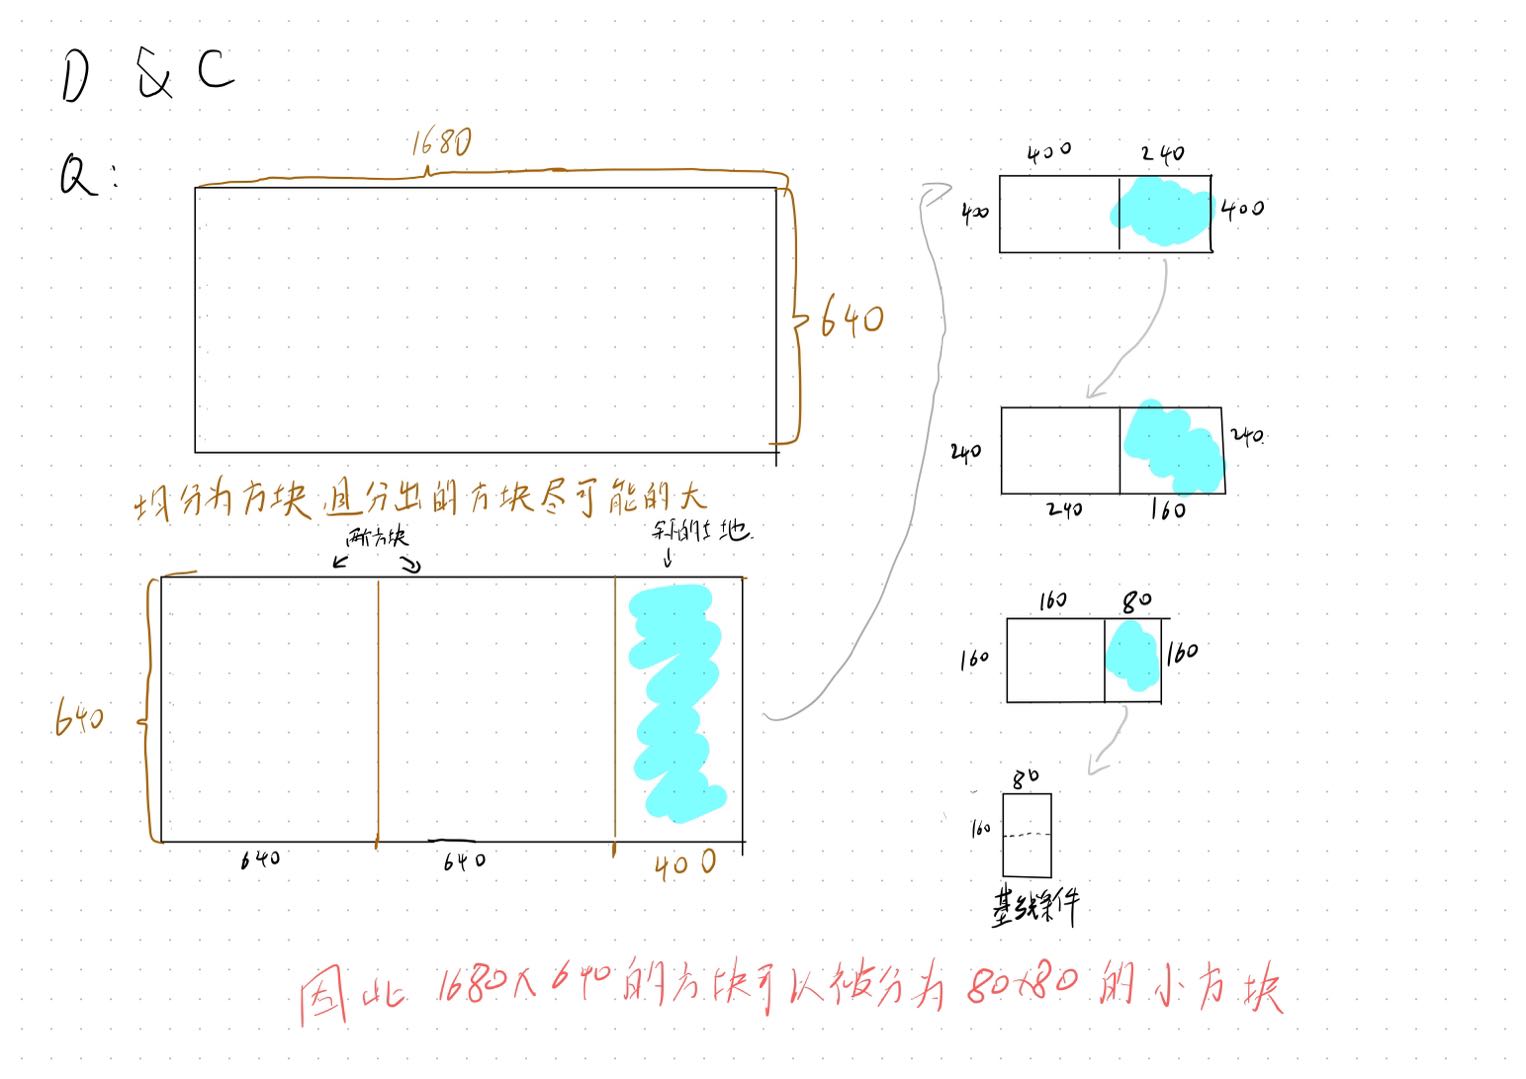 D & C
Q:
1680
640
均分为方块 且分出的方块尽可能的大
两个方块
余下的土地
640
640
640
400
400
240
400
400
240
240
240
160
160
80
160
160
80
160
基线条件
因此 1680×640的方块可以被分为80×80的小方块